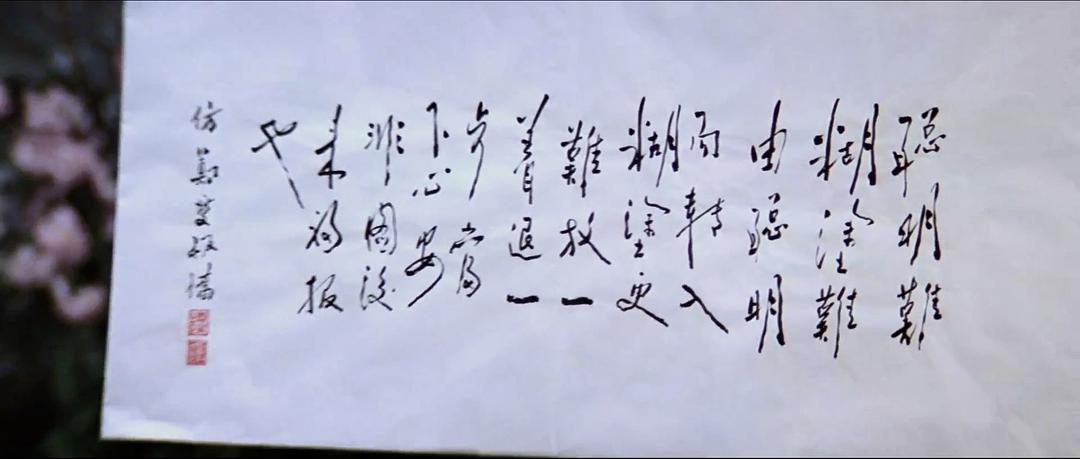 聰明難
糊塗難
由聰明
而轉入
糊塗更
難放一
着退一
步當
下心安
非圖後
來福報
也
仿鄭燮板橋